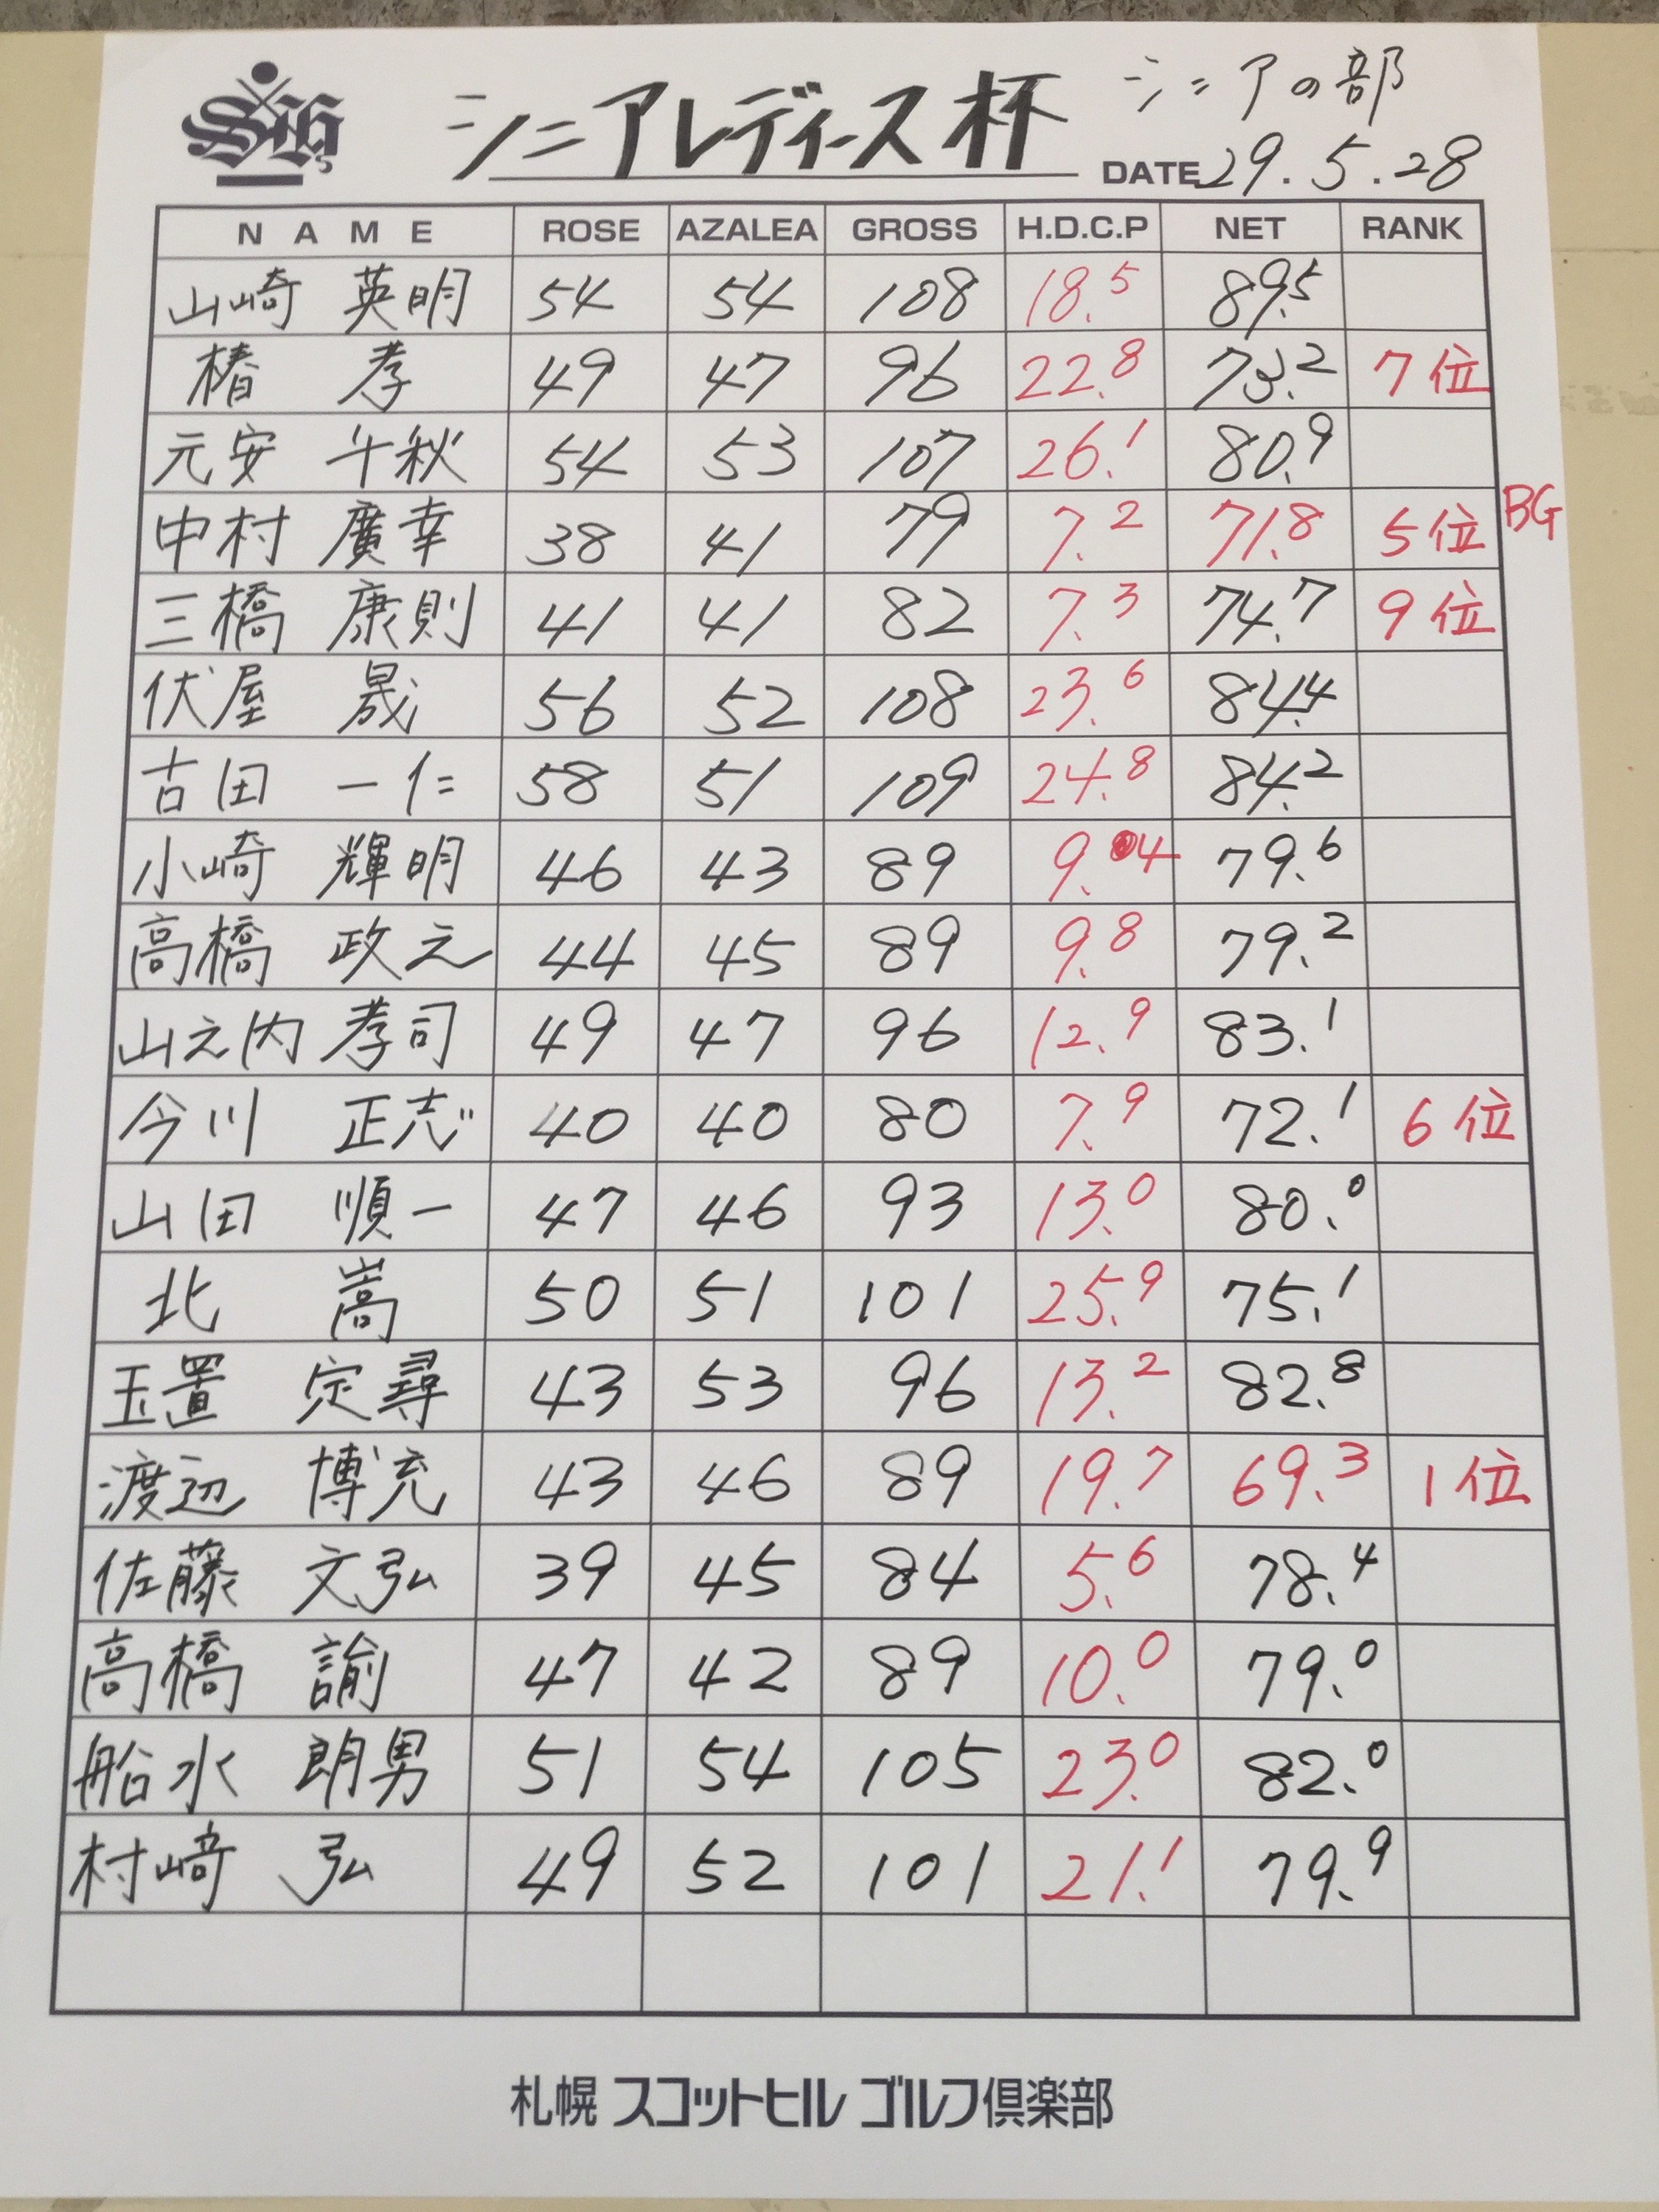 シニアレディース杯 シニアの部
DATE 29.5.28
NAME ROSE AZALEA GROSS H.D.C.P NET RANK
山崎 英明 54 54 108 18.5 89.5
椿 孝 49 47 96 22.8 73.2 7位
元安 千秋 54 53 107 26.1 80.9
中村 廣幸 38 41 79 7.2 71.8 5位 BG
三橋 康則 41 41 82 7.3 74.7 9位
伏屋 晟 56 52 108 23.6 84.4
古田 一仁 58 51 109 24.8 84.2
小崎 輝明 46 43 89 9.4 79.6
高橋 政之 44 45 89 9.8 79.2
山之内 孝司 49 47 96 12.9 83.1
今川 正志 40 40 80 7.9 72.1 6位
山田 順一 47 46 93 13.0 80.0
北 嵩 50 51 101 25.9 75.1
玉置 定尋 43 53 96 13.2 82.8
渡辺 博充 43 46 89 19.7 69.3 1位
佐藤 文弘 39 45 84 5.6 78.4
高橋 諭 47 42 89 10.0 79.0
船水 朗男 51 54 105 23.0 82.0
村﨑 弘 49 52 101 21.1 79.9
札幌 スコットヒル ゴルフ倶楽部